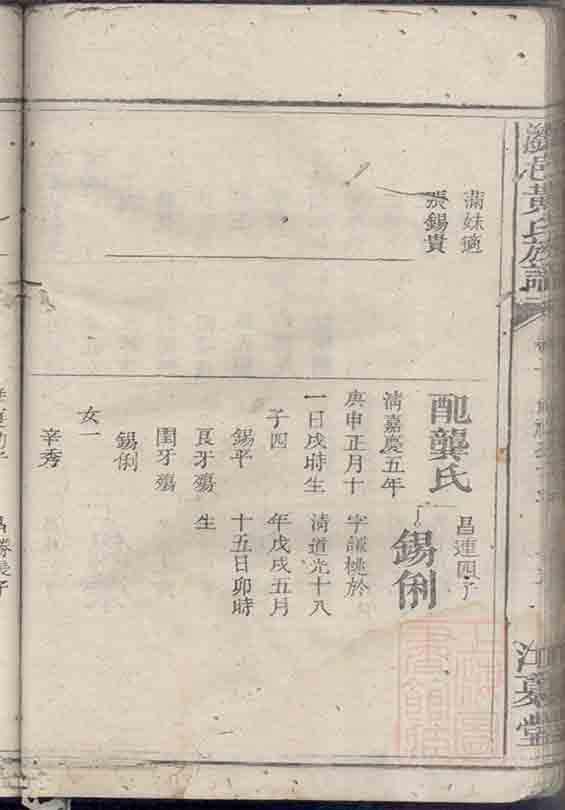 邑黃氏族譜
江夏堂
滿妹適
張錫貴
配龔氏
清嘉慶五年
庚申正月十
一日戌時生
子四
錫平
艮牙殤
閏牙殤
錫俐
女一
辛秀
昌連四子
錫俐
字謙桃於
清道光十八
年戊戌五月
十五日卯時
生